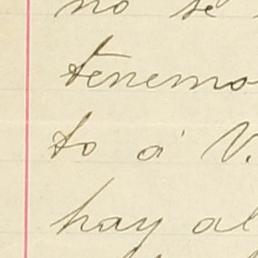 no se
tenemo
to á V.
hay al